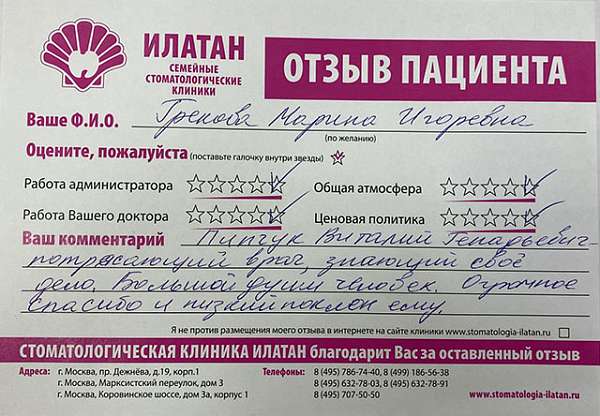 ИЛАТАН
СЕМЕЙНЫЕ
СТОМАТОЛОГИЧЕСКИЕ
КЛИНИКИ
ОТЗЫВ ПАЦИЕНТА
Ваше Ф.И.О. Грекова Марина Игоревна
(по желанию)
Оцените, пожалуйста (поставьте галочку внутри звезды)
Работа администратора
Общая атмосфера
Работа Вашего доктора
Ценовая политика
Ваш комментарий Пипчук Виталий Генарьевич-
потрясающий врач, знающий своё
дело. Большой души человек. Огромное
спасибо и низкий поклон ему.
Я не против размещения моего отзыва в интернете на сайте клиники www.stomatologia-ilatan.ru
СТОМАТОЛОГИЧЕСКАЯ КЛИНИКА ИЛАТАН благодарит Вас за оставленный отзыв
Адреса: г. Москва, пр. Дежнёва, д.19, корп.1
г. Москва, Марксистский переулок, дом 3
г. Москва, Коровинское шоссе, дом 3а, корпус 1
Телефоны: 8 (495) 786-74-40, 8 (499) 186-56-38
8 (495) 632-78-03, 8 (495) 632-78-91
8 (495) 707-50-50
www.stomatologia-ilatan.ru